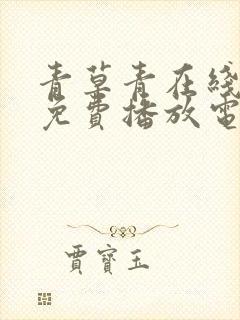 青草青在綫
免費播放電
賈寶玉